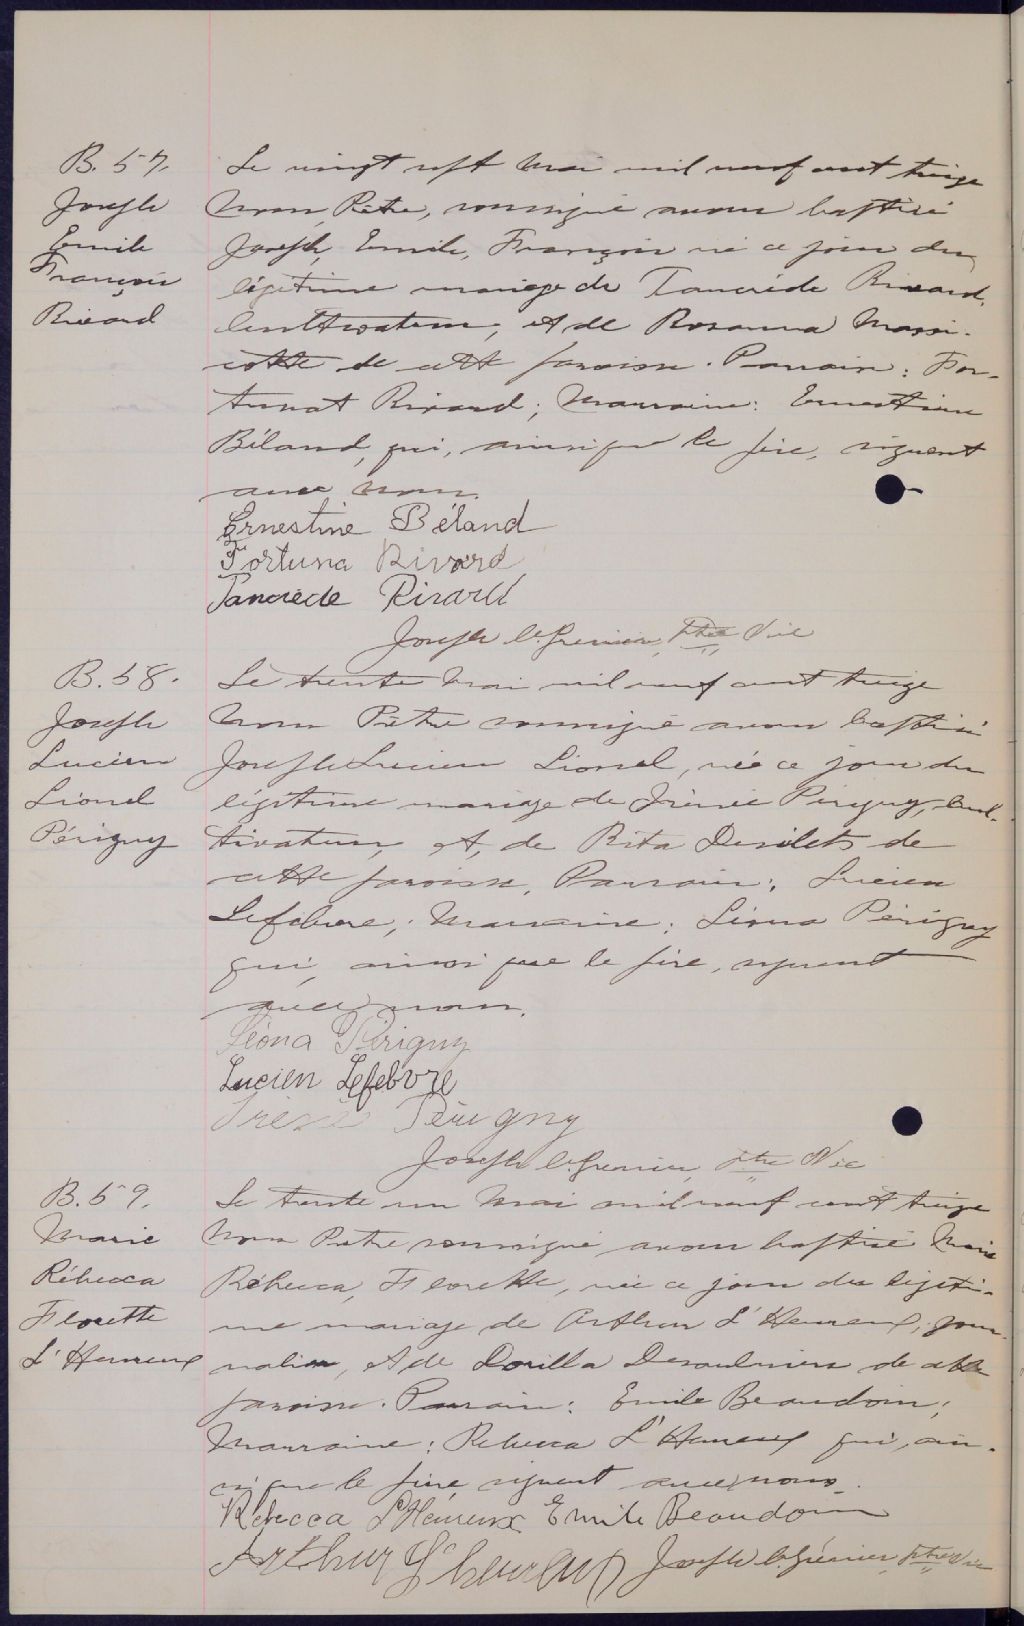 B. 57.
Joseph
Emile
François
Rivard
Le vingt sept Mai mil neuf cent treize
Nous Prêtre, soussigné avons baptisé
Joseph, Emile, François né ce jour du
légitime mariage de Tancrède Rivard,
cultivateur, et de Rosanna Massi-
cotte de cette paroisse. Parrain: For-
tunat Rivard; Marraine: Ernestine
Béland, qui, ainsi que le père, signent
avec nous.
Ernestine Béland
Fortuna Rivard
Tancrède Rivard
Joseph Grenier, Ptre Vic
B. 58.
Joseph
Lucien
Lionel
Périgny
Le trente Mai mil neuf cent treize
Nous Prêtre soussigné avons baptisé
Joseph Lucien Lionel, né ce jour du
légitime mariage de Irénée Périgny, cul-
tivateur, et, de Rita Desilets de
cette paroisse. Parrain: Lucien
Lefebvre; Marraine: Léona Périgny
qui, ainsi que le père, signent
avec nous.
Léona Périgny
Lucien Lefebvre
Irénée Périgny
Joseph Grenier, Ptre Vic
B. 59.
Marie
Rébecca
Florette
L'Heureux
Le trente un Mai mil neuf cent treize
Nous Prêtre soussigné avons baptisé Marie
Rébecca, Florette, née ce jour du légiti-
me mariage de Arthur L'Heureux, jour-
nalier, et de Dorilla Desaulniers de cette
paroisse. Parrain: Emile Beaudoin;
Marraine: Rebecca L'Heureux qui, ain-
si que le père, signent avec nous.
Rébecca L'Heureux Emile Beaudoin
Arthur Lheureux Joseph Grenier, Ptre Vic